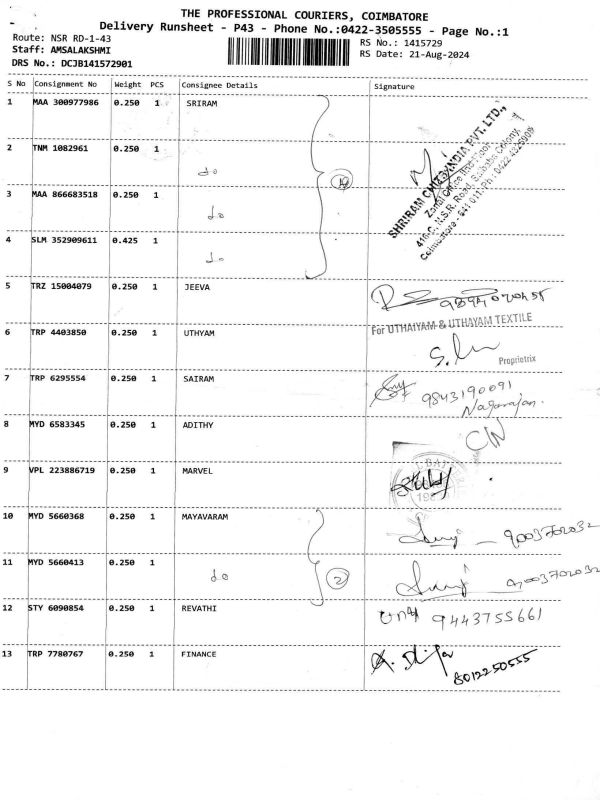 THE PROFESSIONAL COURIERS, COIMBATORE
Delivery Runsheet - P43 - Phone No.:0422-3505555 - Page No.:1
Route: NSR RD-1-43
RS No.: 1415729
Staff: AMSALAKSHMI
RS Date: 21-Aug-2024
DRS No.: DCJB141572901
S No Consignment No Weight PCS Consignee Details Signature
1 MAA 300977986 0.250 1 SRIRAM
2 TNM 1082961 0.250 1 do
3 MAA 866683518 0.250 1 do
4 SLM 352909611 0.425 1 do
SHRIRAM CHITS INDIA PVT. LTD.,
Zonal Office
416-C, N.S.R. Road, Saibaba Colony,
Coimbatore - 641 011. Ph: 0422 4325909
5 TRZ 15004079 0.250 1 JEEVA
6 TRP 4403850 0.250 1 UTHYAM
For UTHAIYAM & UTHAYAM TEXTILE
Proprietrix
7 TRP 6295554 0.250 1 SAIRAM 9843190091
Nagarajan.
8 MYD 6583345 0.250 1 ADITHY
9 VPL 223886719 0.250 1 MARVEL
10 MYD 5660368 0.250 1 MAYAVARAM 9003702032
11 MYD 5660413 0.250 1 do 2 9003702032
12 STY 6090854 0.250 1 REVATHI 9443755661
13 TRP 7780767 0.250 1 FINANCE 8012250555